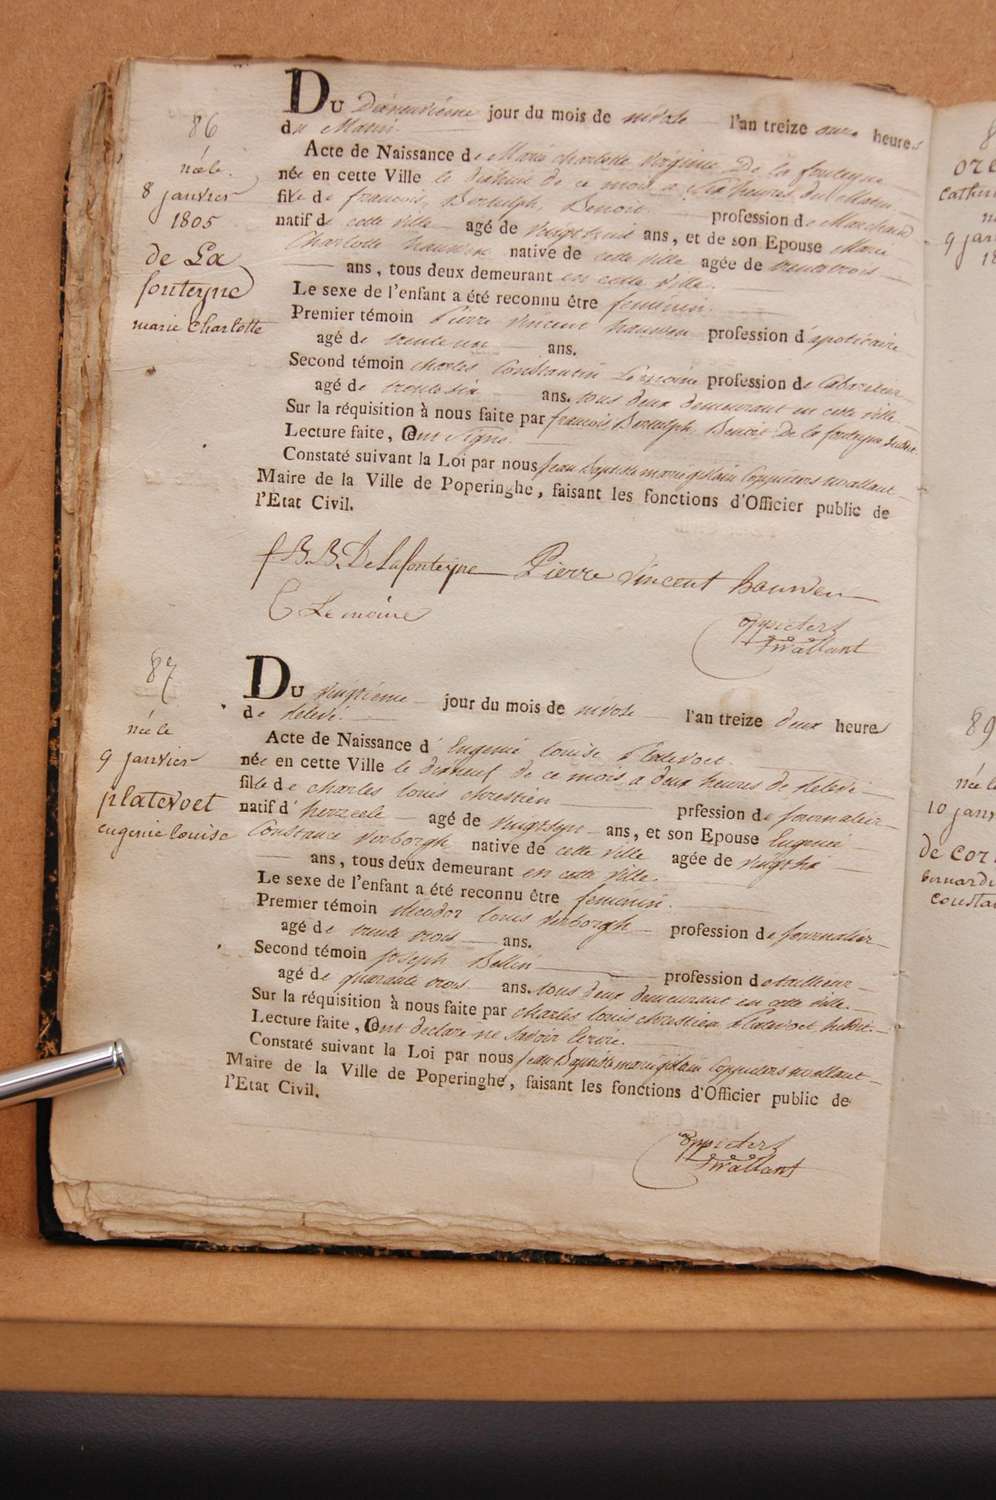 86
née le
8 janvier
1805
de La
fonteyne
marie charlotte
Du Dixneuvième jour du mois de nivose l'an treize onze heures
du Matin
Acte de Naissance de Marie charlotte virginie De la fonteyne
née en cette Ville le dixhuit de ce mois a six heures du Matin
fille de francois, Bertulph, Benoit profession de Marchand
natif de cette ville agé de vingt huit ans, et de son Epouse Marie
Charlotte hauwen native de cette ville agée de trente trois
ans, tous deux demeurant en cette ville.
Le sexe de l'enfant a été reconnu être feminin.
Premier témoin Pierre vincent hauwen profession d'apoticaire
agé de trente un ans.
Second témoin charles Constantin Lemoine profession de Cabaretier
agé de trente six ans. tous deux demeurant en cette ville.
Sur la réquisition à nous faite par francois Bertulph Benoit De la fonteyne susdit.
Lecture faite, Ont signé.
Constaté suivant la Loi par nous Jean Baptiste marie gislain Coppieters wallant
Maire de la Ville de Poperinghe, faisant les fonctions d'Officier public de
l'Etat Civil.
f B. B. De Lafonteyne Pierre Vincent hauwen
C Lemoine
Coppieters
wallant
87
née le
9 janvier
platevoet
eugenie louise
Du vingtième jour du mois de nivose l'an treize deux heure
de relevé.
Acte de Naissance d'Eugenie louise Platevoet.
née en cette Ville le dixneuf de ce mois a deux heures de relevé
fille de charles louis chrestien prfession de journalier
natif d'herzeele agé de vingtsept ans, et son Epouse Eugenie
Constance verborgh native de cette ville agée de vingtsix
ans, tous deux demeurant en cette ville.
Le sexe de l'enfant a été reconnu être feminin.
Premier témoin theodor louis verborgh profession de journalier
agé de trente trois ans.
Second témoin joseph Bellin profession de tailleur
agé de quarante trois ans. tous deux demeurant en cette ville.
Sur la réquisition à nous faite par charles louis chrestien Platevoet susdit.
Lecture faite, Ont declaré ne savoir Ecrire.
Constaté suivant la Loi par nous Jean Baptiste marie gislain Coppieters wallant
Maire de la Ville de Poperinghe, faisant les fonctions d'Officier public de
l'Etat Civil.
Coppieters
wallant
89
10 janv
de cor
bernard
consta